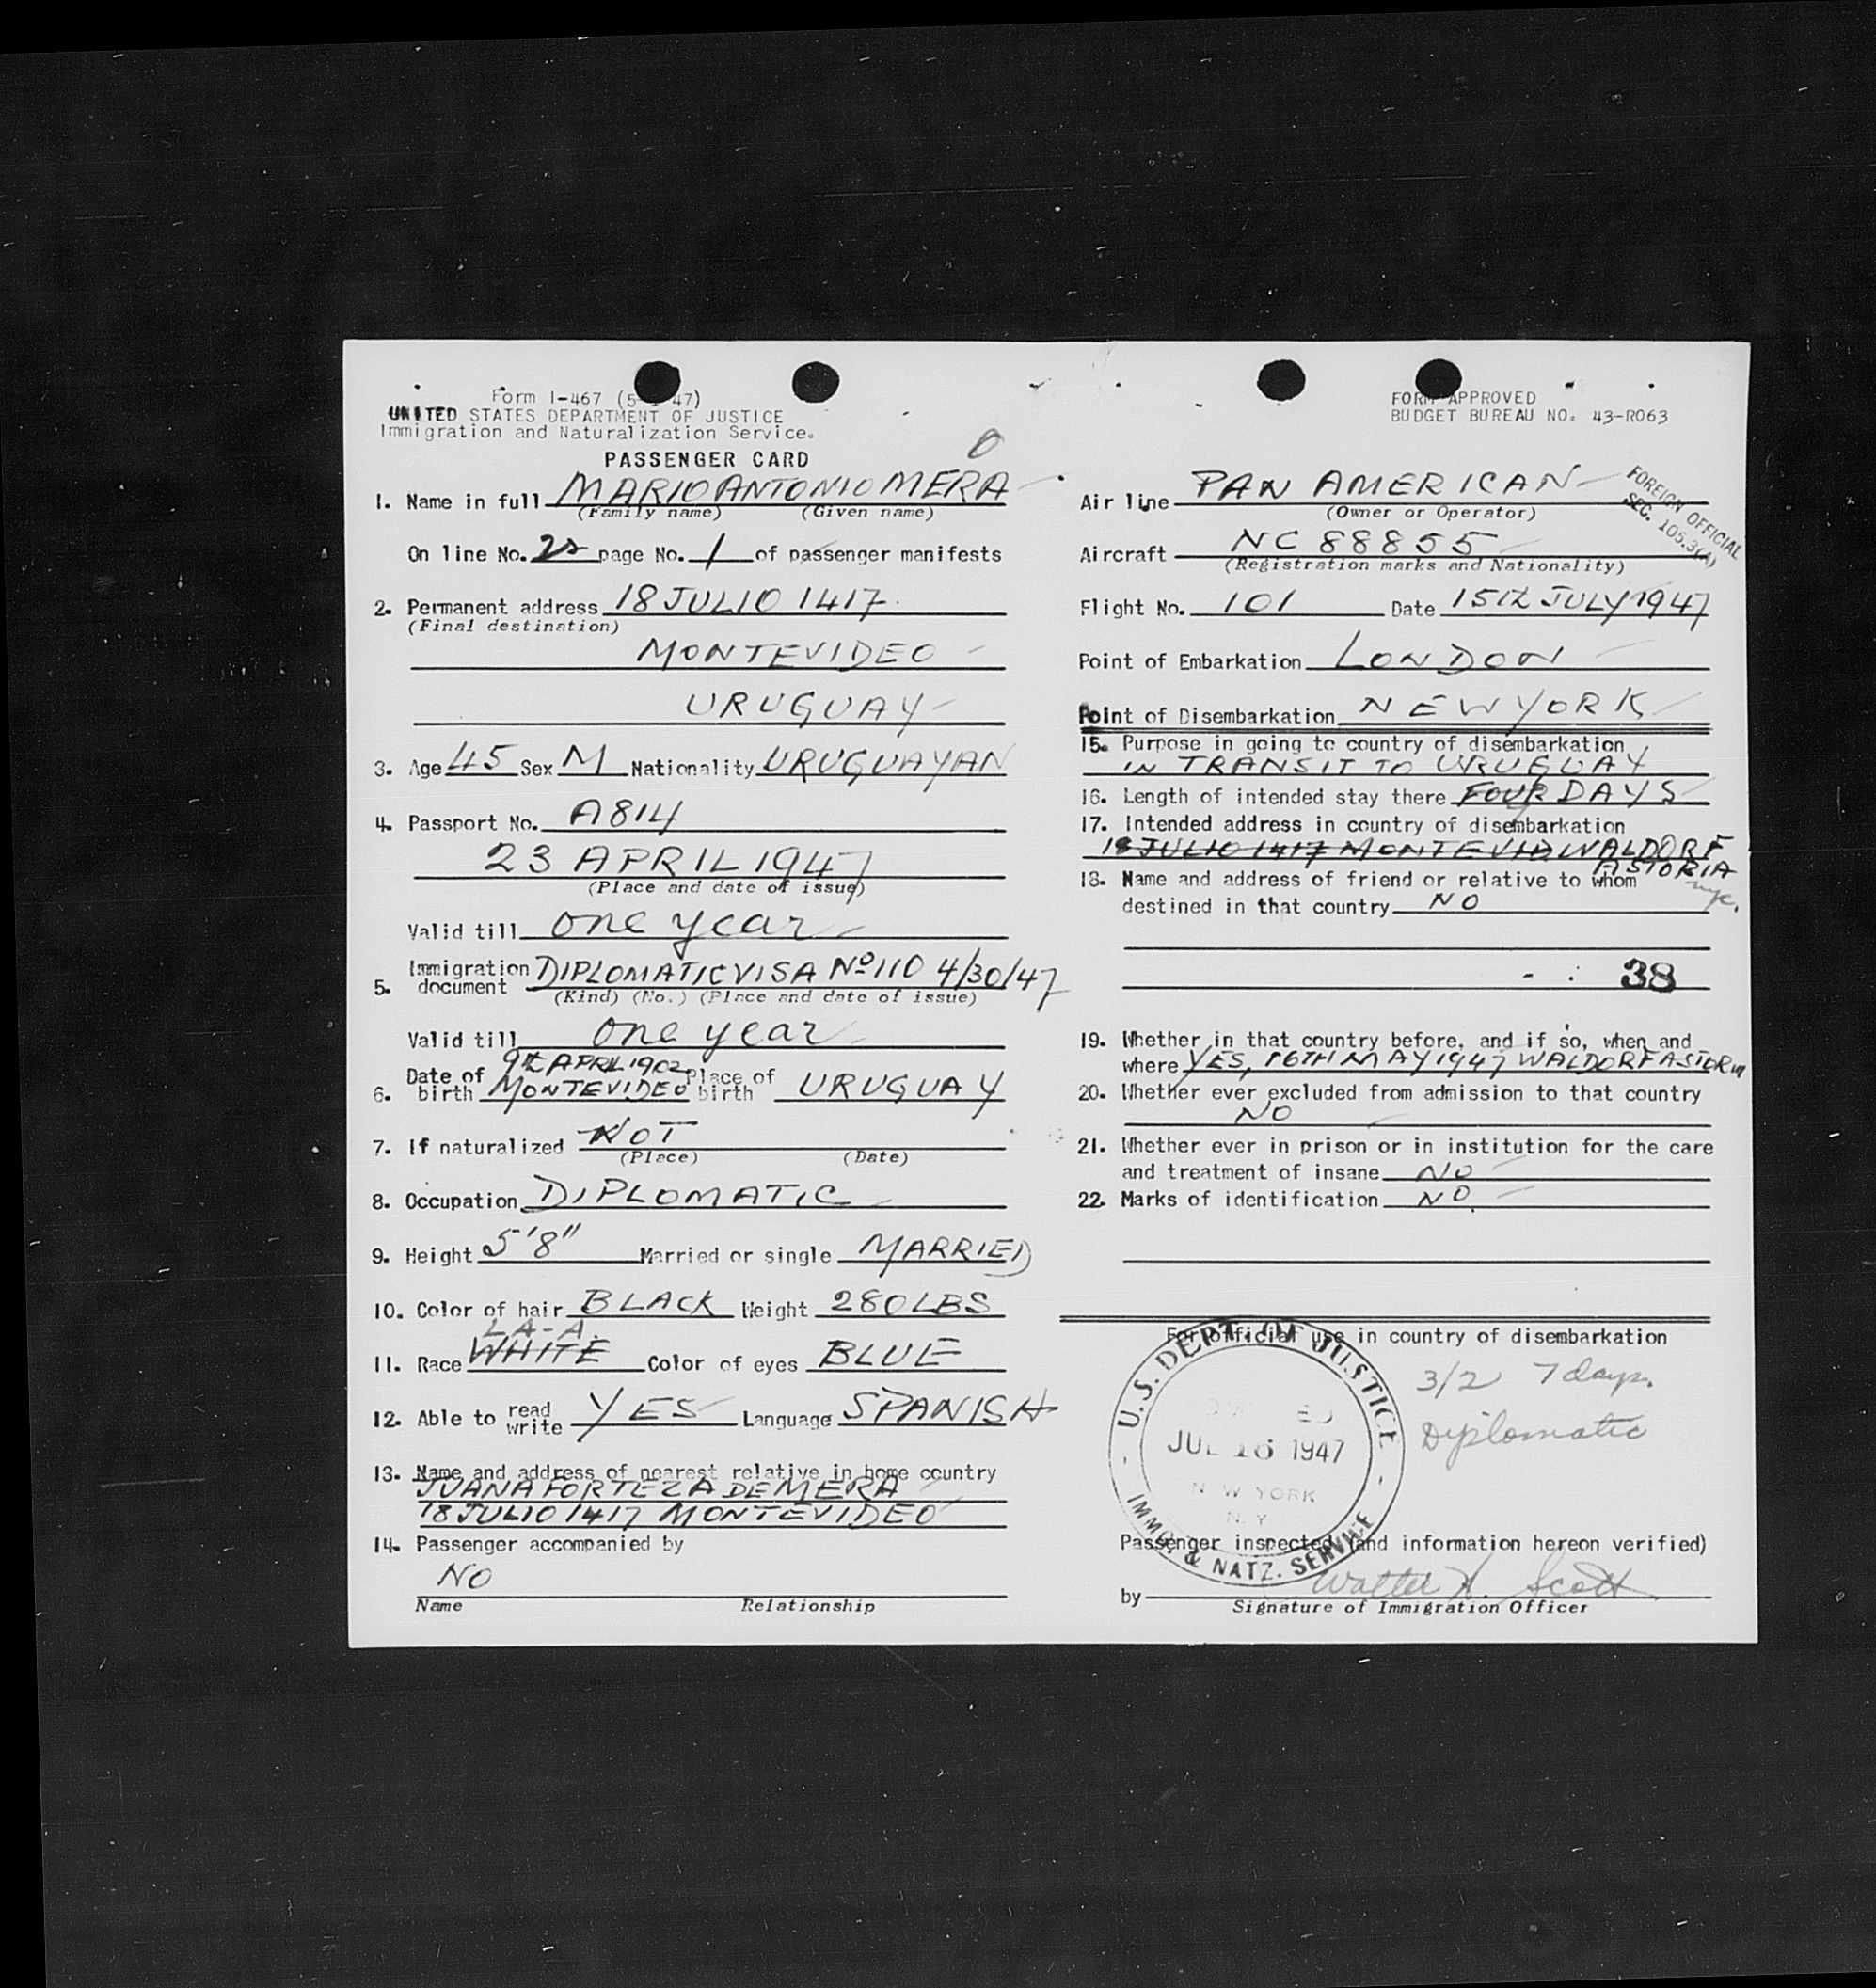 Form I-467 (5- -47)
UNITED STATES DEPARTMENT OF JUSTICE
Immigration and Naturalization Service.
PASSENGER CARD
1. Name in full MARIO ANTONIO MERA
(Family name) (Given name)
On line No. page No. 1 of passenger manifests
2. Permanent address 18 JULIO 1417
(Final destination)
MONTEVIDEO
URUGUAY
3. Age 45 Sex M Nationality URUGUAYAN
4. Passport No. A814
23 APRIL 1947
(Place and date of issue)
Valid till one year
5. Immigration document DIPLOMATIC VISA Nº 110 4/30/47
(Kind) (No.) (Place and date of issue)
Valid till one year
9th APRIL 1902
6. Date of birth MONTEVIDEO Place of birth URUGUAY
7. If naturalized NOT
(Place) (Date)
8. Occupation DIPLOMATIC
9. Height 5'8" Married or single MARRIED
10. Color of hair BLACK Weight 280 LBS
LA-A.
11. Race WHITE Color of eyes BLUE
12. Able to read write YES Language SPANISH
13. Name and address of nearest relative in home country
JUANA FORTEZA DE MERA
18 JULIO 1417 MONTEVIDEO
14. Passenger accompanied by
NO
Name Relationship
FORM APPROVED
BUDGET BUREAU NO. 43-R063
FOREIGN OFFICIAL
SEC. 105.3(A)
Air line PAN AMERICAN
(Owner or Operator)
Aircraft NC 88855
(Registration marks and Nationality)
Flight No. 101 Date 15th JULY 1947
Point of Embarkation LONDON
Point of Disembarkation NEW YORK
15. Purpose in going to country of disembarkation
IN TRANSIT TO URUGUAY
16. Length of intended stay there FOUR DAYS
17. Intended address in country of disembarkation
18 JULIO 1417 MONTEVID. WALDORF
ASTORIA
nyc.
18. Name and address of friend or relative to whom
destined in that country NO
38
19. Whether in that country before, and if so, when and
where YES, 16TH MAY 1947 WALDORF ASTORIA
20. Whether ever excluded from admission to that country
NO
21. Whether ever in prison or in institution for the care
and treatment of insane NO
22. Marks of identification NO
For official use in country of disembarkation
3/2 7 days.
Diplomatic
U.S. DEPT. OF JUSTICE
JUL 16 1947
NEW YORK
N.Y.
IMMG. & NATZ. SERVICE
Passenger inspected (and information hereon verified)
by Walter A. Scott
Signature of Immigration Officer